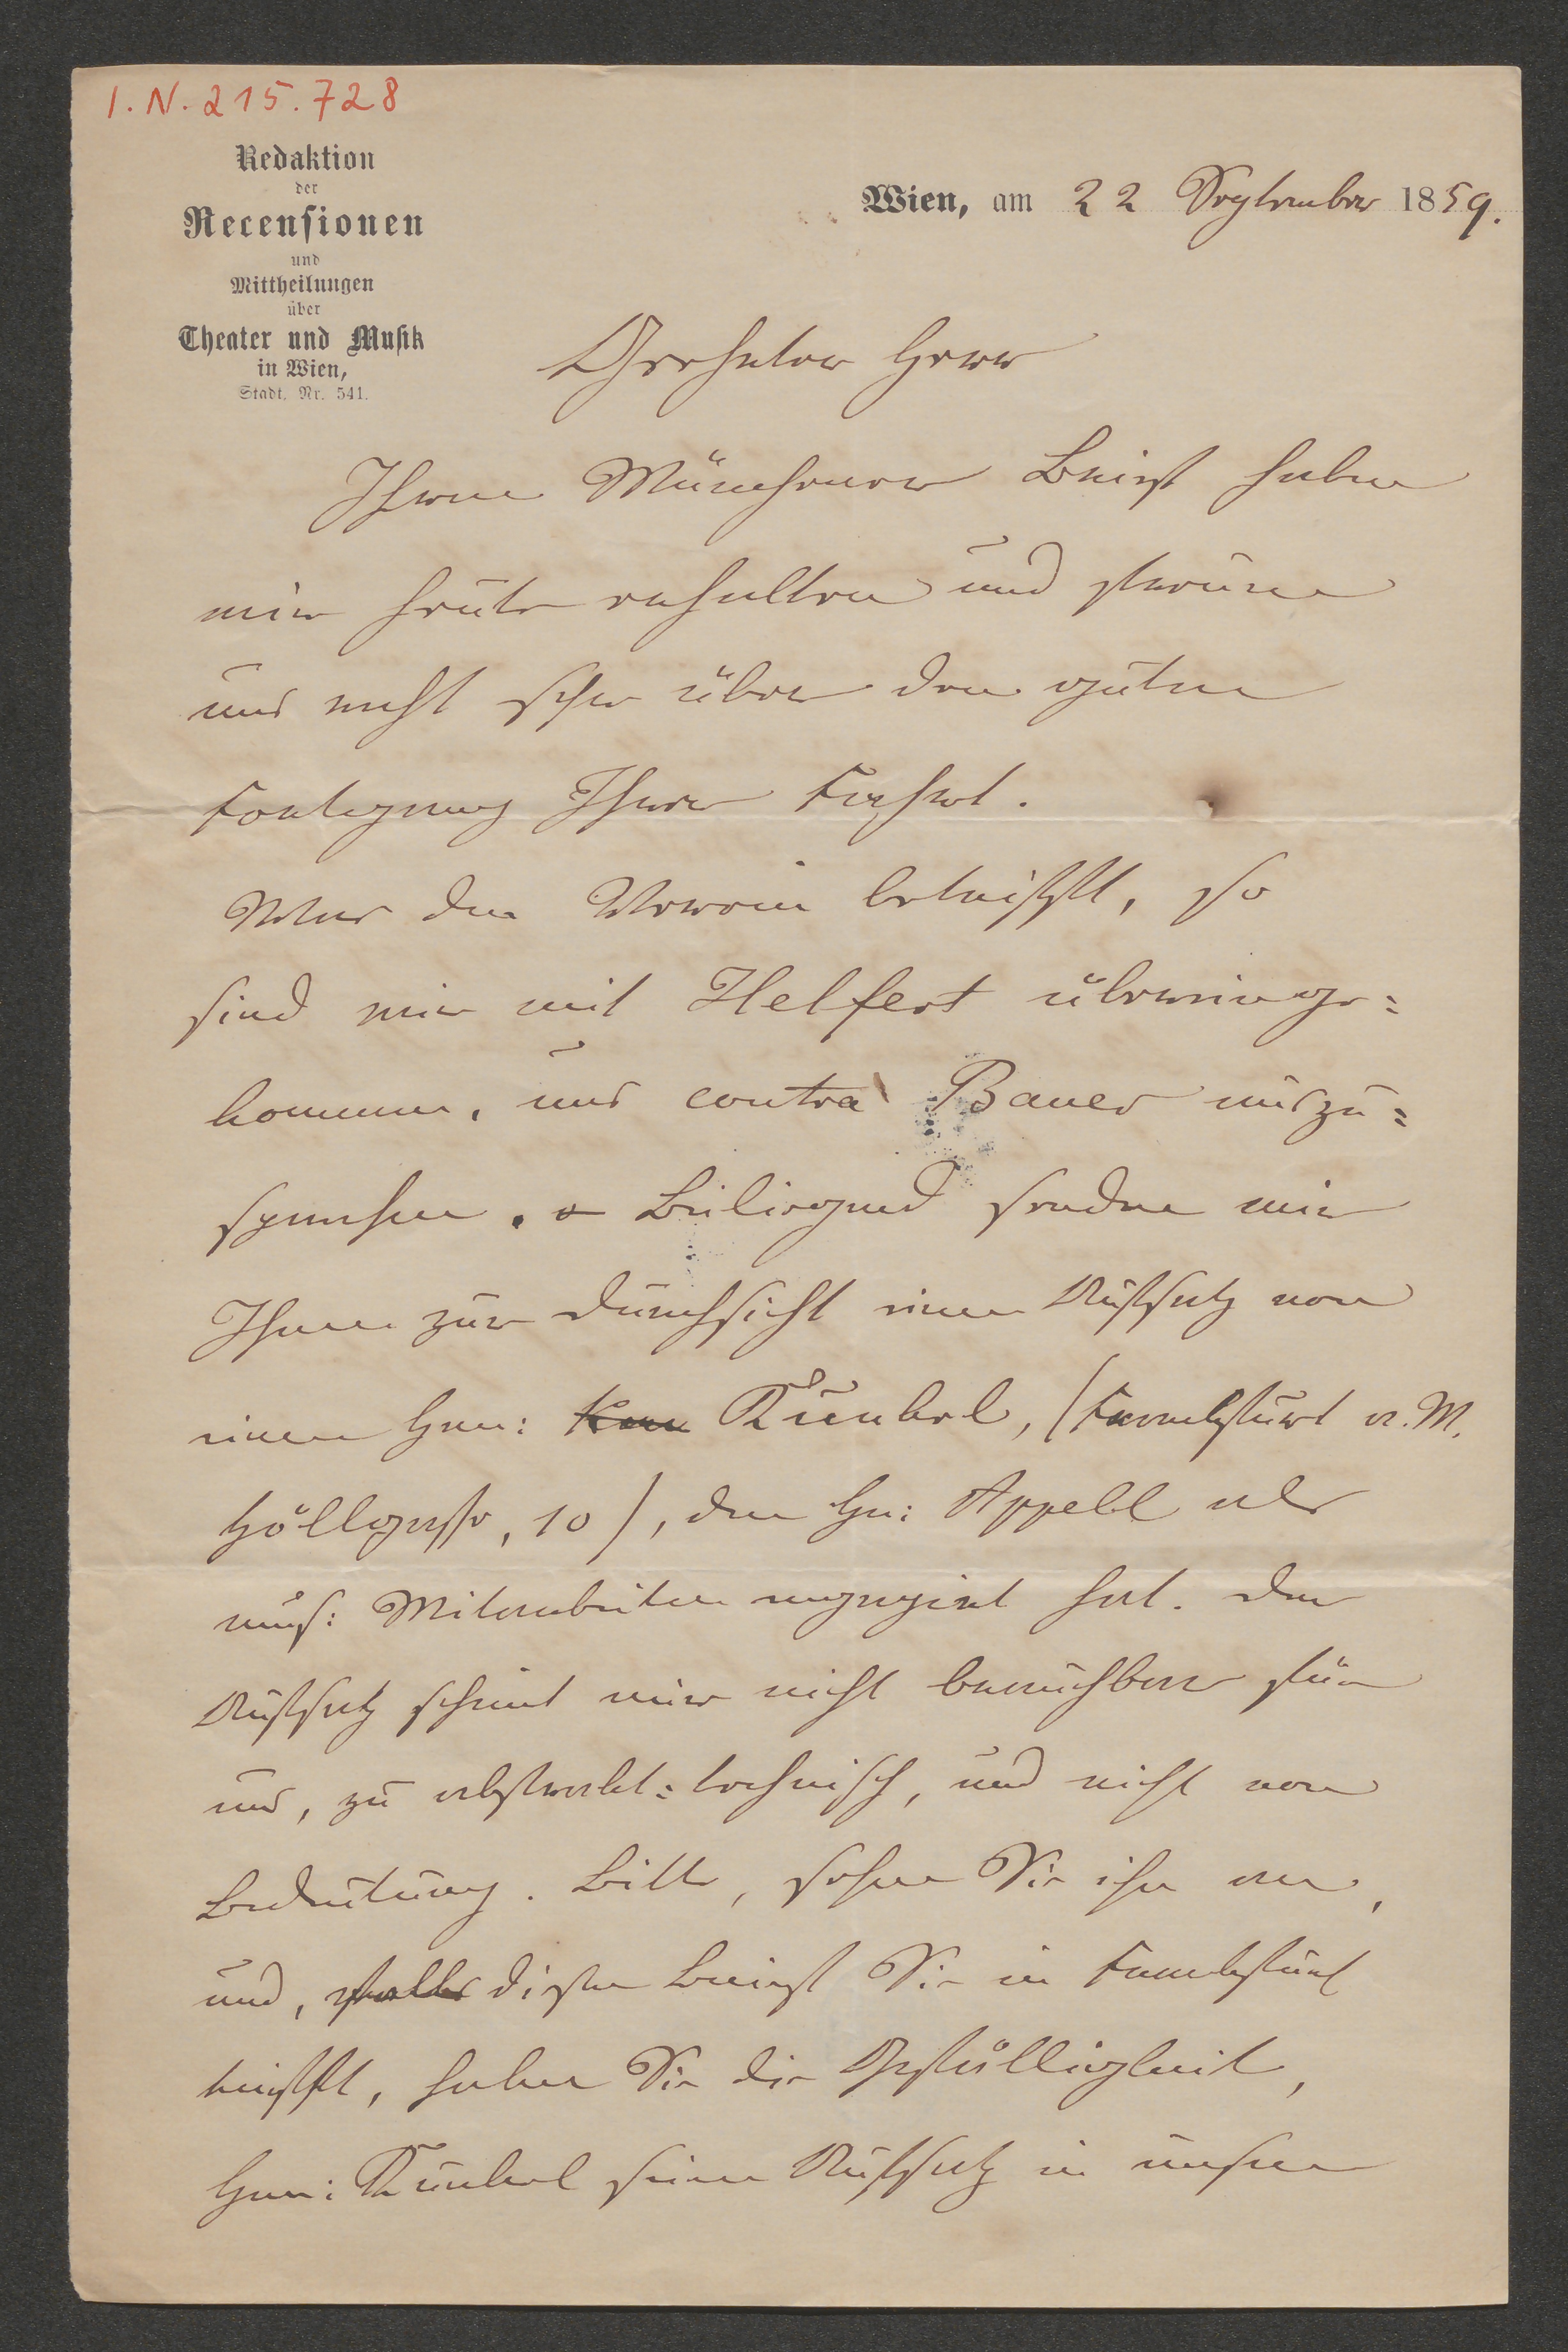 I.N. 215.728
Redaktion
der
Recensionen
und
Mittheilungen
über
Theater und Musik
in Wien,
Stadt, Nr. 541.
Wien, am 22 September 1859.
Geehrter Herr
Ihren Münchener Brief haben
wir heute erhalten und freuen
uns recht sehr über den guten
Fortgang Ihrer Fahrt.
Was den Verein betrifft, so
sind wir mit Helfert übereinge=
kommen, uns contra Bauer auszu=
sprechen. Beiliegend senden wir
Ihnen zur Durchsicht einen Aufsatz von
einem Hrn: Kunkel, (Frankfurt a. M.
Höllgasse, 10), den Hr: Appell als
mus: Mitarbeiter engagirt hat. Der
Aufsatz scheint mir nicht brauchbar für
uns, zu abstrakt=technisch, und nicht von
Bedeutung. Bitte, sehen Sie ihn an,
und, falls dieser Brief Sie in Frankfurt
trifft, haben Sie die Gefälligkeit,
Hrn: Kunkel seinen Aufsatz in unserm